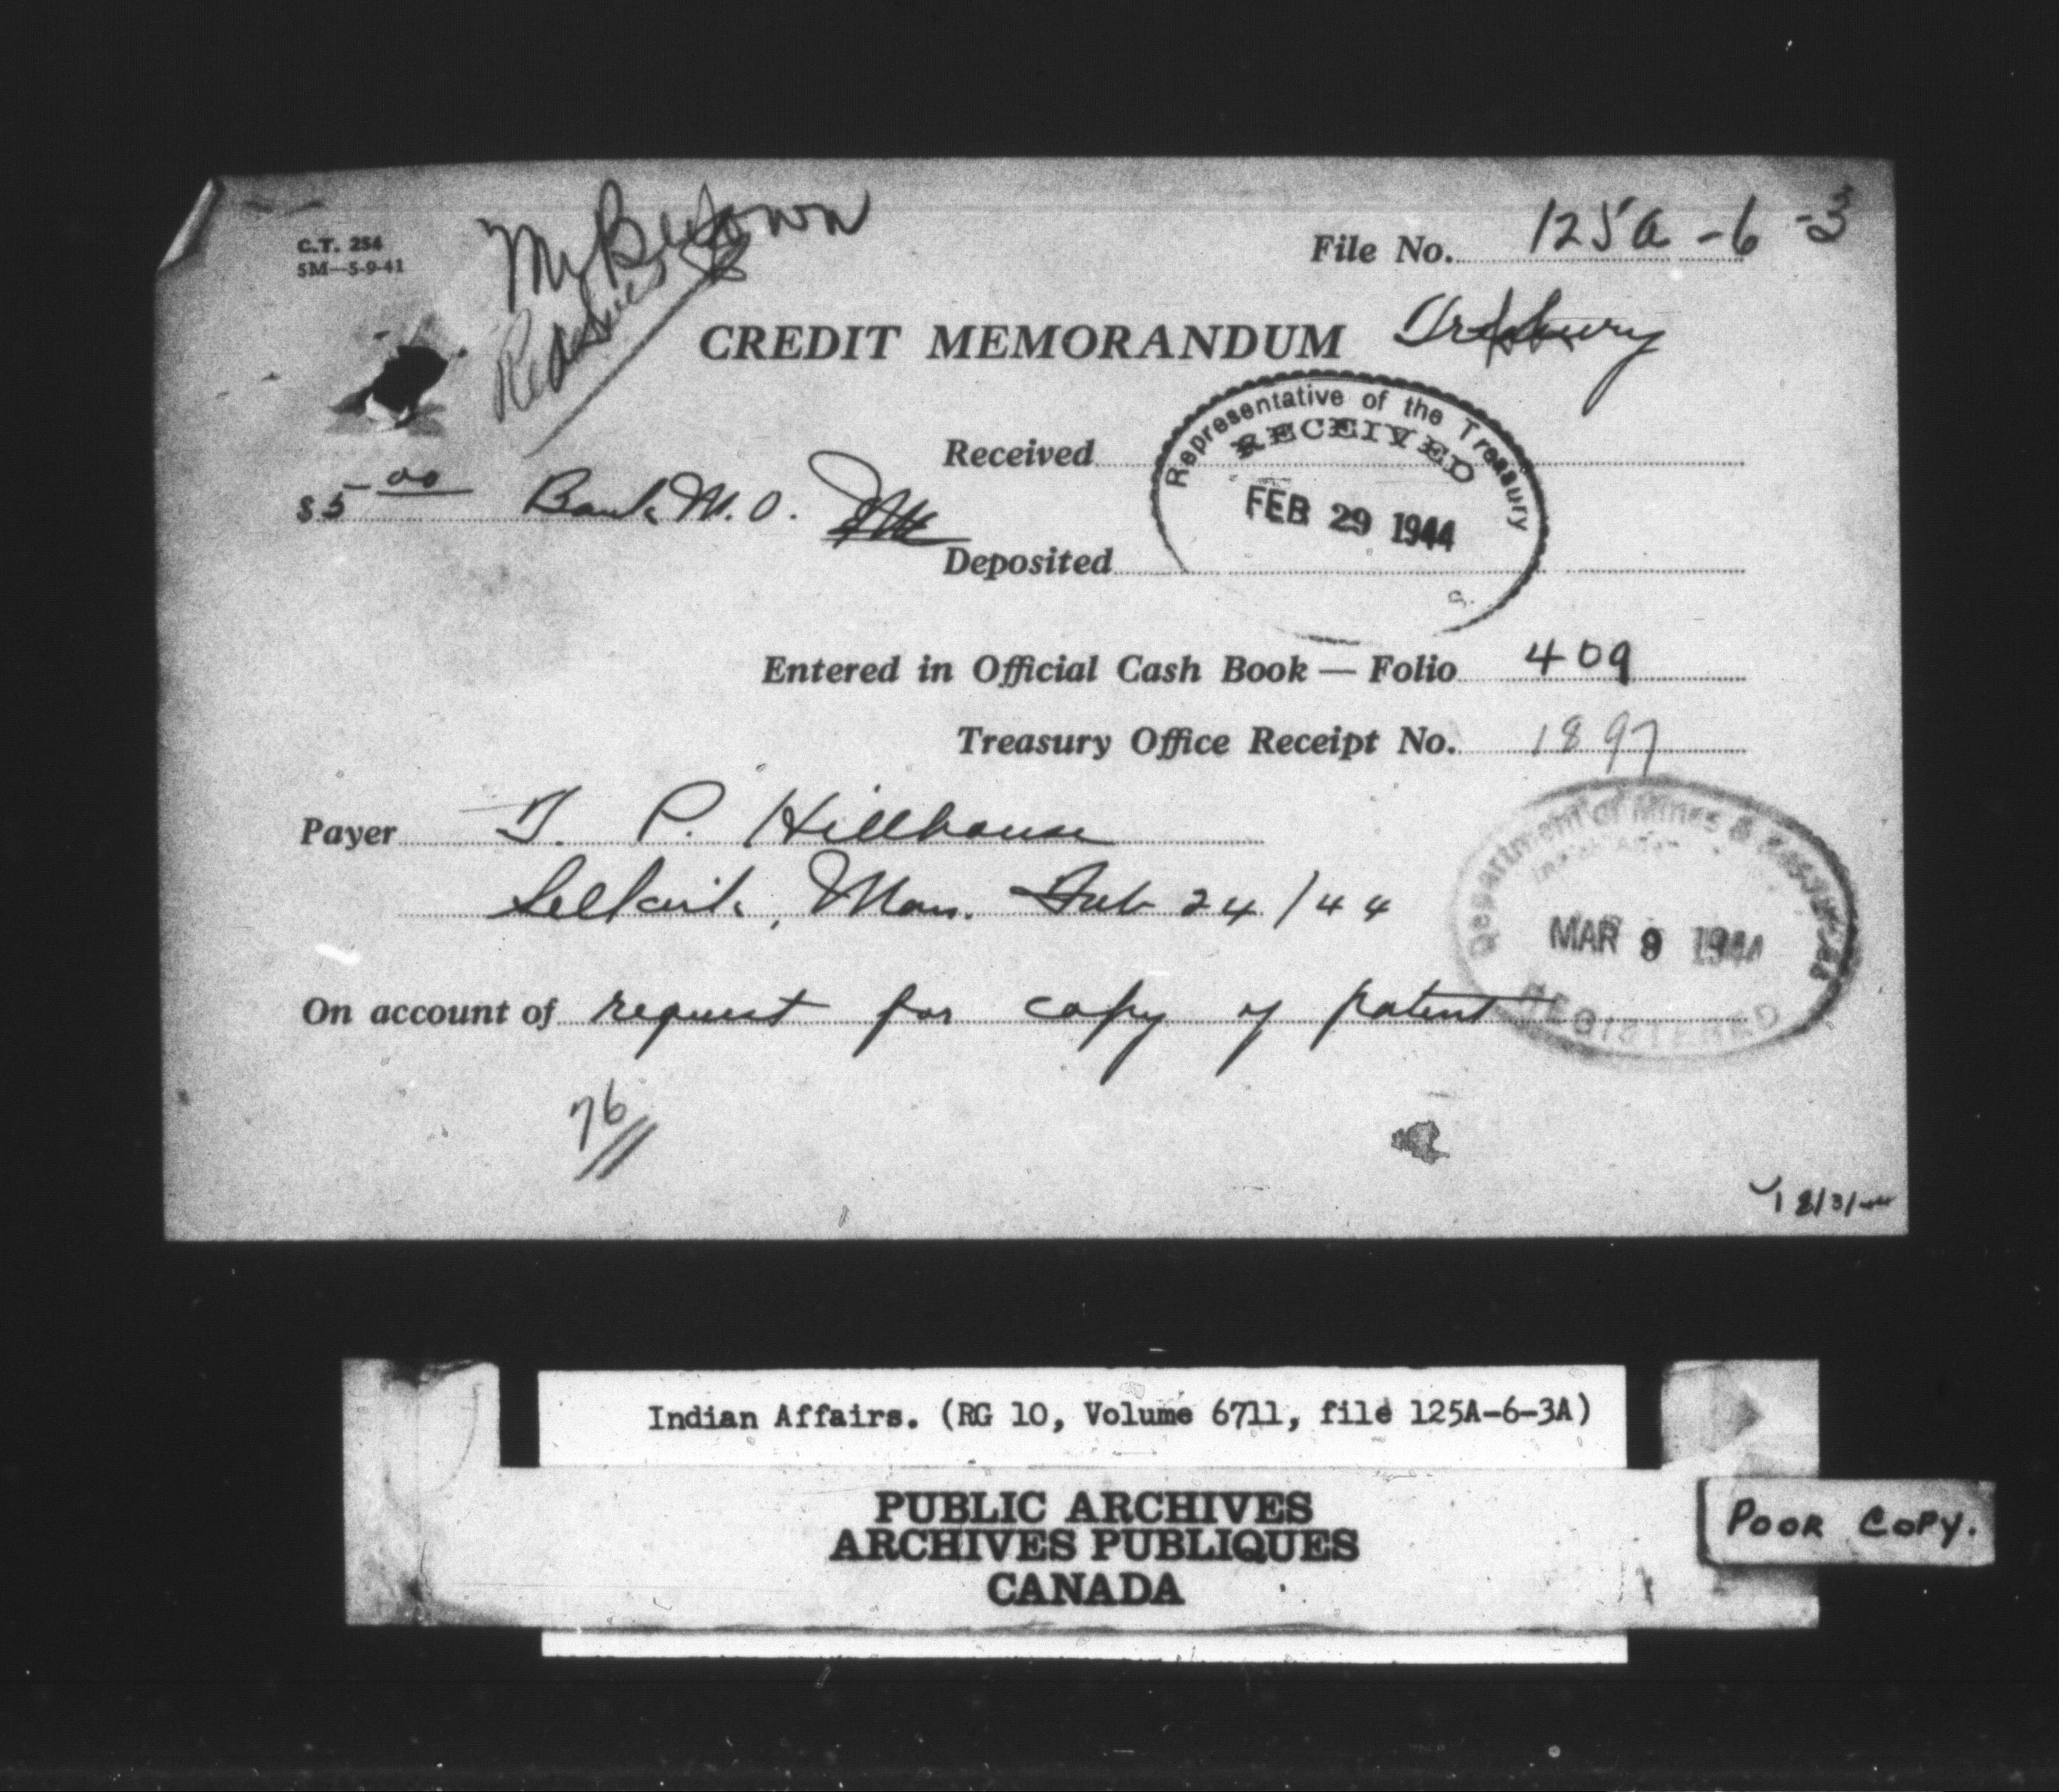 C.T. 254
5M—5-9-41
File No. 125A-6-3
CREDIT MEMORANDUM
Representative of the Treasury
RECEIVED
FEB 29 1944
Received
$5.00 Bank M.O.
Deposited
Entered in Official Cash Book — Folio 409
Treasury Office Receipt No. 1897
Payer T. P. Hillhouse
Selkirk, Man. Feb 24/44
Department of Mines & Resources
Indian Affairs
MAR 9 1944
REGISTERED
On account of request for copy of patent
76
Indian Affairs. (RG 10, Volume 6711, file 125A-6-3A)
PUBLIC ARCHIVES
ARCHIVES PUBLIQUES
CANADA
POOR COPY.